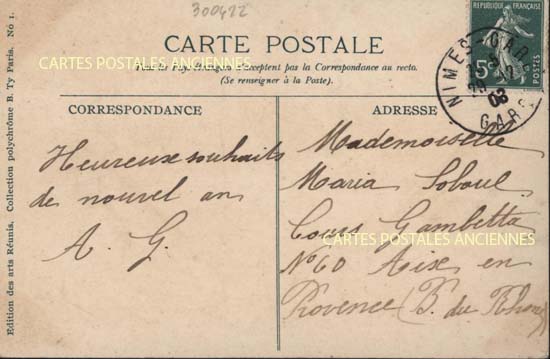 300422
CARTE POSTALE
CARTES POSTALES ANCIENNES
Tous les Pays étrangers n'acceptent pas la Correspondance au recto.
(Se renseigner à la Poste).
REPUBLIQUE FRANÇAISE
5c
POSTES
NIMES GARE
08
GARD
Edition des arts Réunis. Collection polychrôme B. Ty Paris. No 1.
CORRESPONDANCE
Heureux souhaits
de nouvel an
A. G.
ADRESSE
Mademoiselle
Maria Soboul
Cours Gambetta
CARTES POSTALES ANCIENNES
N° 60 Aix en
Provence (B. du Rhone)